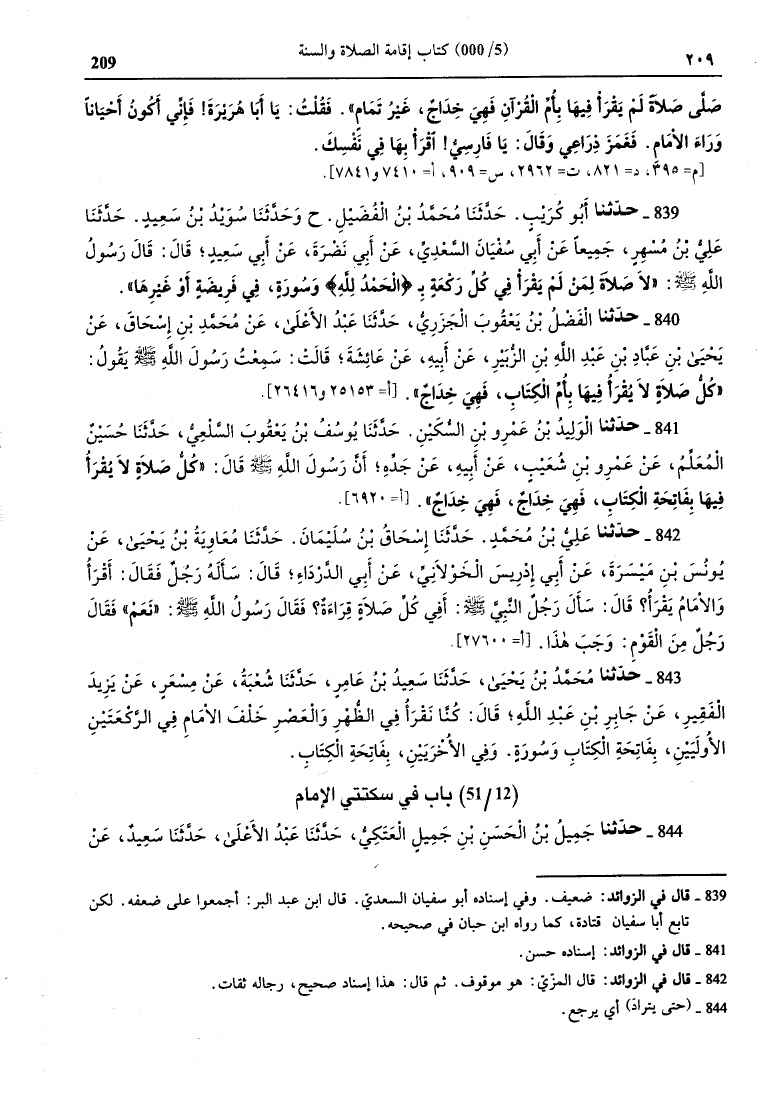 209 (000/5) كتاب إقامة الصلاة والسنة ٢٠٩
صَلَّى صَلاَةً لَمْ يَقْرَأْ فِيهَا بِأُمِّ الْقُرْآنِ فَهِيَ خِدَاجٌ، غَيْرُ تَمَامٍ». فَقُلْتُ: يَا أَبَا هُرَيْرَةَ! فَإِنِّي أَكُونُ أَحْيَاناً
وَرَاءَ الأمَامِ. فَغَمَزَ ذِرَاعِي وَقَالَ: يَا فَارِسِيُّ! اقْرَأْ بِهَا فِي نَفْسِكَ.
[م=٣٩٥، د=٨٢١، ت=٢٩٦٢، س=٩٠٩، أ=٧٤١٠ و٧٨٤١].
839 ـ حدّثنا أَبُو كُرَيْبٍ. حَدَّثَنَا مُحَمَّدُ بْنُ الْفُضَيْلِ. ح وَحَدَّثَنَا سُوَيْدُ بْنُ سَعِيدٍ. حَدَّثَنَا
عَلِيُّ بْنُ مُسْهِرٍ، جَمِيعاً عَنْ أَبِي سُفْيَانَ السَّعْدِيِّ، عَنْ أَبِي نَضْرَةَ، عَنْ أَبِي سَعِيدٍ؛ قَالَ: قَالَ رَسُولُ
اللَّهِ ﷺ: «لاَ صَلاَةَ لِمَنْ لَمْ يَقْرَأْ فِي كُلِّ رَكْعَةٍ بِـ ﴿الْحَمْدُ لِلَّهِ﴾ وَسُورَةٍ، فِي فَرِيضَةٍ أَوْ غَيْرِهَا».
840 ـ حدّثنا الْفَضْلُ بْنُ يَعْقُوبَ الْجَزَرِيُّ، حَدَّثَنَا عَبْدُ الأَعْلَى، عَنْ مُحَمَّدِ بْنِ إِسْحَاقَ، عَنْ
يَحْيَىٰ بْنِ عَبَّادِ بْنِ عَبْدِ اللَّهِ بْنِ الزُّبَيْرِ، عَنْ أَبِيهِ، عَنْ عَائِشَةَ؛ قَالَتْ: سَمِعْتُ رَسُولَ اللَّهِ ﷺ يَقُولُ:
«كُلُّ صَلاَةٍ لاَ يُقْرَأُ فِيهَا بِأُمِّ الْكِتَابِ، فَهِيَ خِدَاجٌ». [أ=٢٥١٥٣ و٢٦٤١٦].
841 ـ حدّثنا الْوَلِيدُ بْنُ عَمْرِو بْنِ السُّكَيْنِ. حَدَّثَنَا يُوسُفُ بْنُ يَعْقُوبَ السَّلْعِيُّ، حَدَّثَنَا حُسَيْنٌ
الْمُعَلِّمُ، عَنْ عَمْرِو بْنِ شُعَيْبٍ، عَنْ أَبِيهِ، عَنْ جَدِّهِ؛ أَنَّ رَسُولَ اللَّهِ ﷺ قَالَ: «كُلُّ صَلاَةٍ لاَ يُقْرَأُ
فِيهَا بِفَاتِحَةِ الْكِتَابِ، فَهِيَ خِدَاجٌ، فَهِيَ خِدَاجٌ». [أ=٦٩٢٠].
842 ـ حدّثنا عَلِيُّ بْنُ مُحَمَّدٍ. حَدَّثَنَا إِسْحَاقُ بْنُ سُلَيْمَانَ. حَدَّثَنَا مُعَاوِيَةُ بْنُ يَحْيَىٰ، عَنْ
يُونُسَ بْنِ مَيْسَرَةَ، عَنْ أَبِي إِدْرِيسَ الْخَوْلاَنِيِّ، عَنْ أَبِي الدَّرْدَاءِ؛ قَالَ: سَأَلَهُ رَجُلٌ فَقَالَ: أَقْرَأُ
وَالأمَامُ يَقْرَأُ؟ قَالَ: سَأَلَ رَجُلٌ النَّبِيَّ ﷺ: أَفِي كُلِّ صَلاَةٍ قِرَاءَةٌ؟ فَقَالَ رَسُولُ اللَّهِ ﷺ: «نَعَمْ» فَقَالَ
رَجُلٌ مِنَ الْقَوْمِ: وَجَبَ هٰذَا. [أ=٢٧٦٠٠].
843 ـ حدّثنا مُحَمَّدُ بْنُ يَحْيَىٰ، حَدَّثَنَا سَعِيدُ بْنُ عَامِرٍ، حَدَّثَنَا شُعْبَةُ، عَنْ مِسْعَرٍ، عَنْ يَزِيدَ
الْفَقِيرِ، عَنْ جَابِرِ بْنِ عَبْدِ اللَّهِ؛ قَالَ: كُنَّا نَقْرَأُ فِي الظُّهْرِ وَالْعَصْرِ خَلْفَ الأمَامِ فِي الرَّكْعَتَيْنِ
الأُولَيَيْنِ، بِفَاتِحَةِ الْكِتَابِ وَسُورَةٍ. وَفِي الأُخْرَيَيْنِ، بِفَاتِحَةِ الْكِتَابِ.
(51/12) باب في سكتتي الإمام
844 ـ حدّثنا جَمِيلُ بْنُ الْحَسَنِ بْنِ جَمِيلٍ الْعَتَكِيُّ، حَدَّثَنَا عَبْدُ الأَعْلَىٰ، حَدَّثَنَا سَعِيدٌ، عَنْ
839 ـ قال في الزوائد: ضعيف. وفي إسناده أبو سفيان السعديّ. قال ابن عبد البر: أجمعوا على ضعفه. لكن
تابع أبا سفيان قتادة، كما رواه ابن حبان في صحيحه.
841 ـ قال في الزوائد: إسناده حسن.
842 ـ قال في الزوائد: قال المزّيّ: هو موقوف. ثم قال: هذا إسناد صحيح، رجاله ثقات.
844 ـ (حتى يترادّ) أي يرجع.